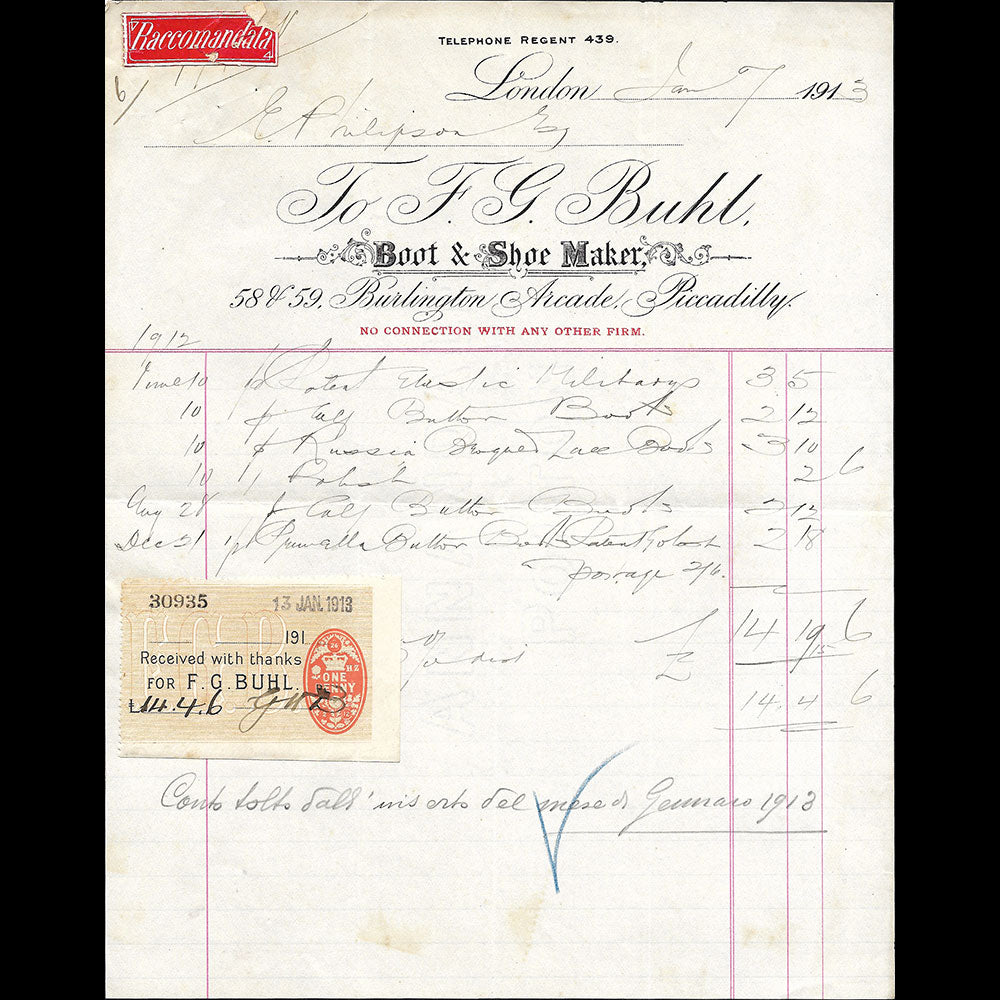 Raccomandata
4
TELEPHONE REGENT 439.
London Jan 7 1913
6/
E. Philipson Esq
To F. G. Buhl,
Boot & Shoe Maker,
58 & 59, Burlington Arcade, Piccadilly.
NO CONNECTION WITH ANY OTHER FIRM.
1912
June 10 Patent Elastic Military 3 5
10 Calf Button Boots 2 12
10 Russia Brogued Lace Boots 3 10
10 Polish 2 6
Aug 28 Calf Button Boots 2 12
Dec 31 Prunella Button Boots Patent Golosh 2 18
Postage 2/6.
14 19 6
15
14 . 4 6
30935 13 JAN. 1913
191
Received with thanks
FOR F. G. BUHL.
£14.4.6
ONE
PENNY
Conto tolto dall' inserto del mese di Gennaro 1913